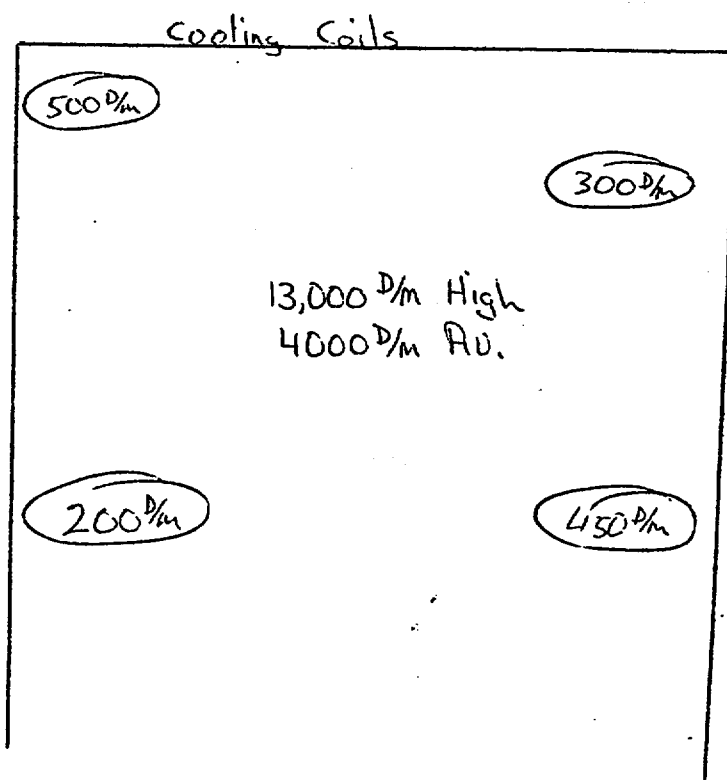 Cooling Coils
500 D/m
300 D/m
13,000 D/m High
4000 D/m Av.
200 D/m
450 D/m